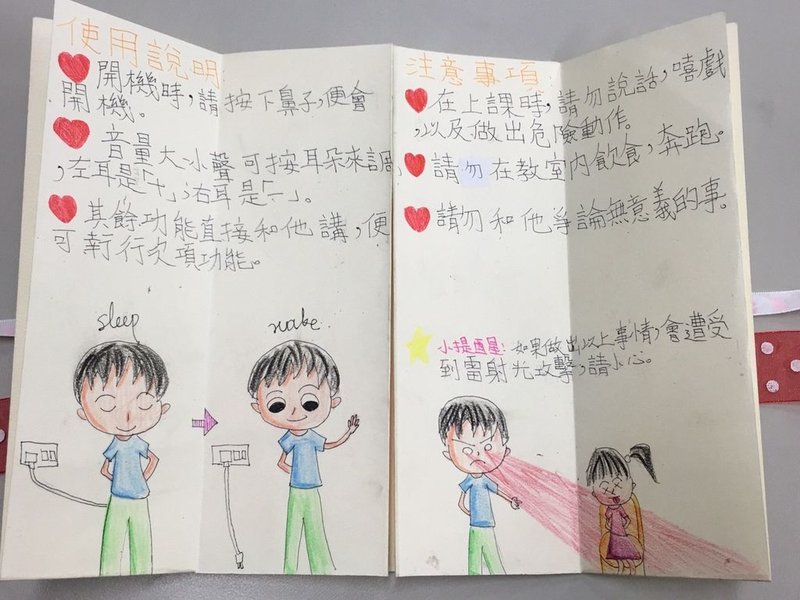 使用說明
開機時,請按下鼻子,便會
開機。
音量大小聲可按耳朵來調
,左耳是「+」,右耳是「-」。
其餘功能直接和他講,便
可執行次項功能。
sleep
wake
注意事項
在上課時,請勿說話,嘻戲
,以及做出危險動作。
請勿在教室內飲食,奔跑。
請勿和他爭論無意義的事。
小提醒:如果做出以上事情,會遭受
到雷射光攻擊,請小心。